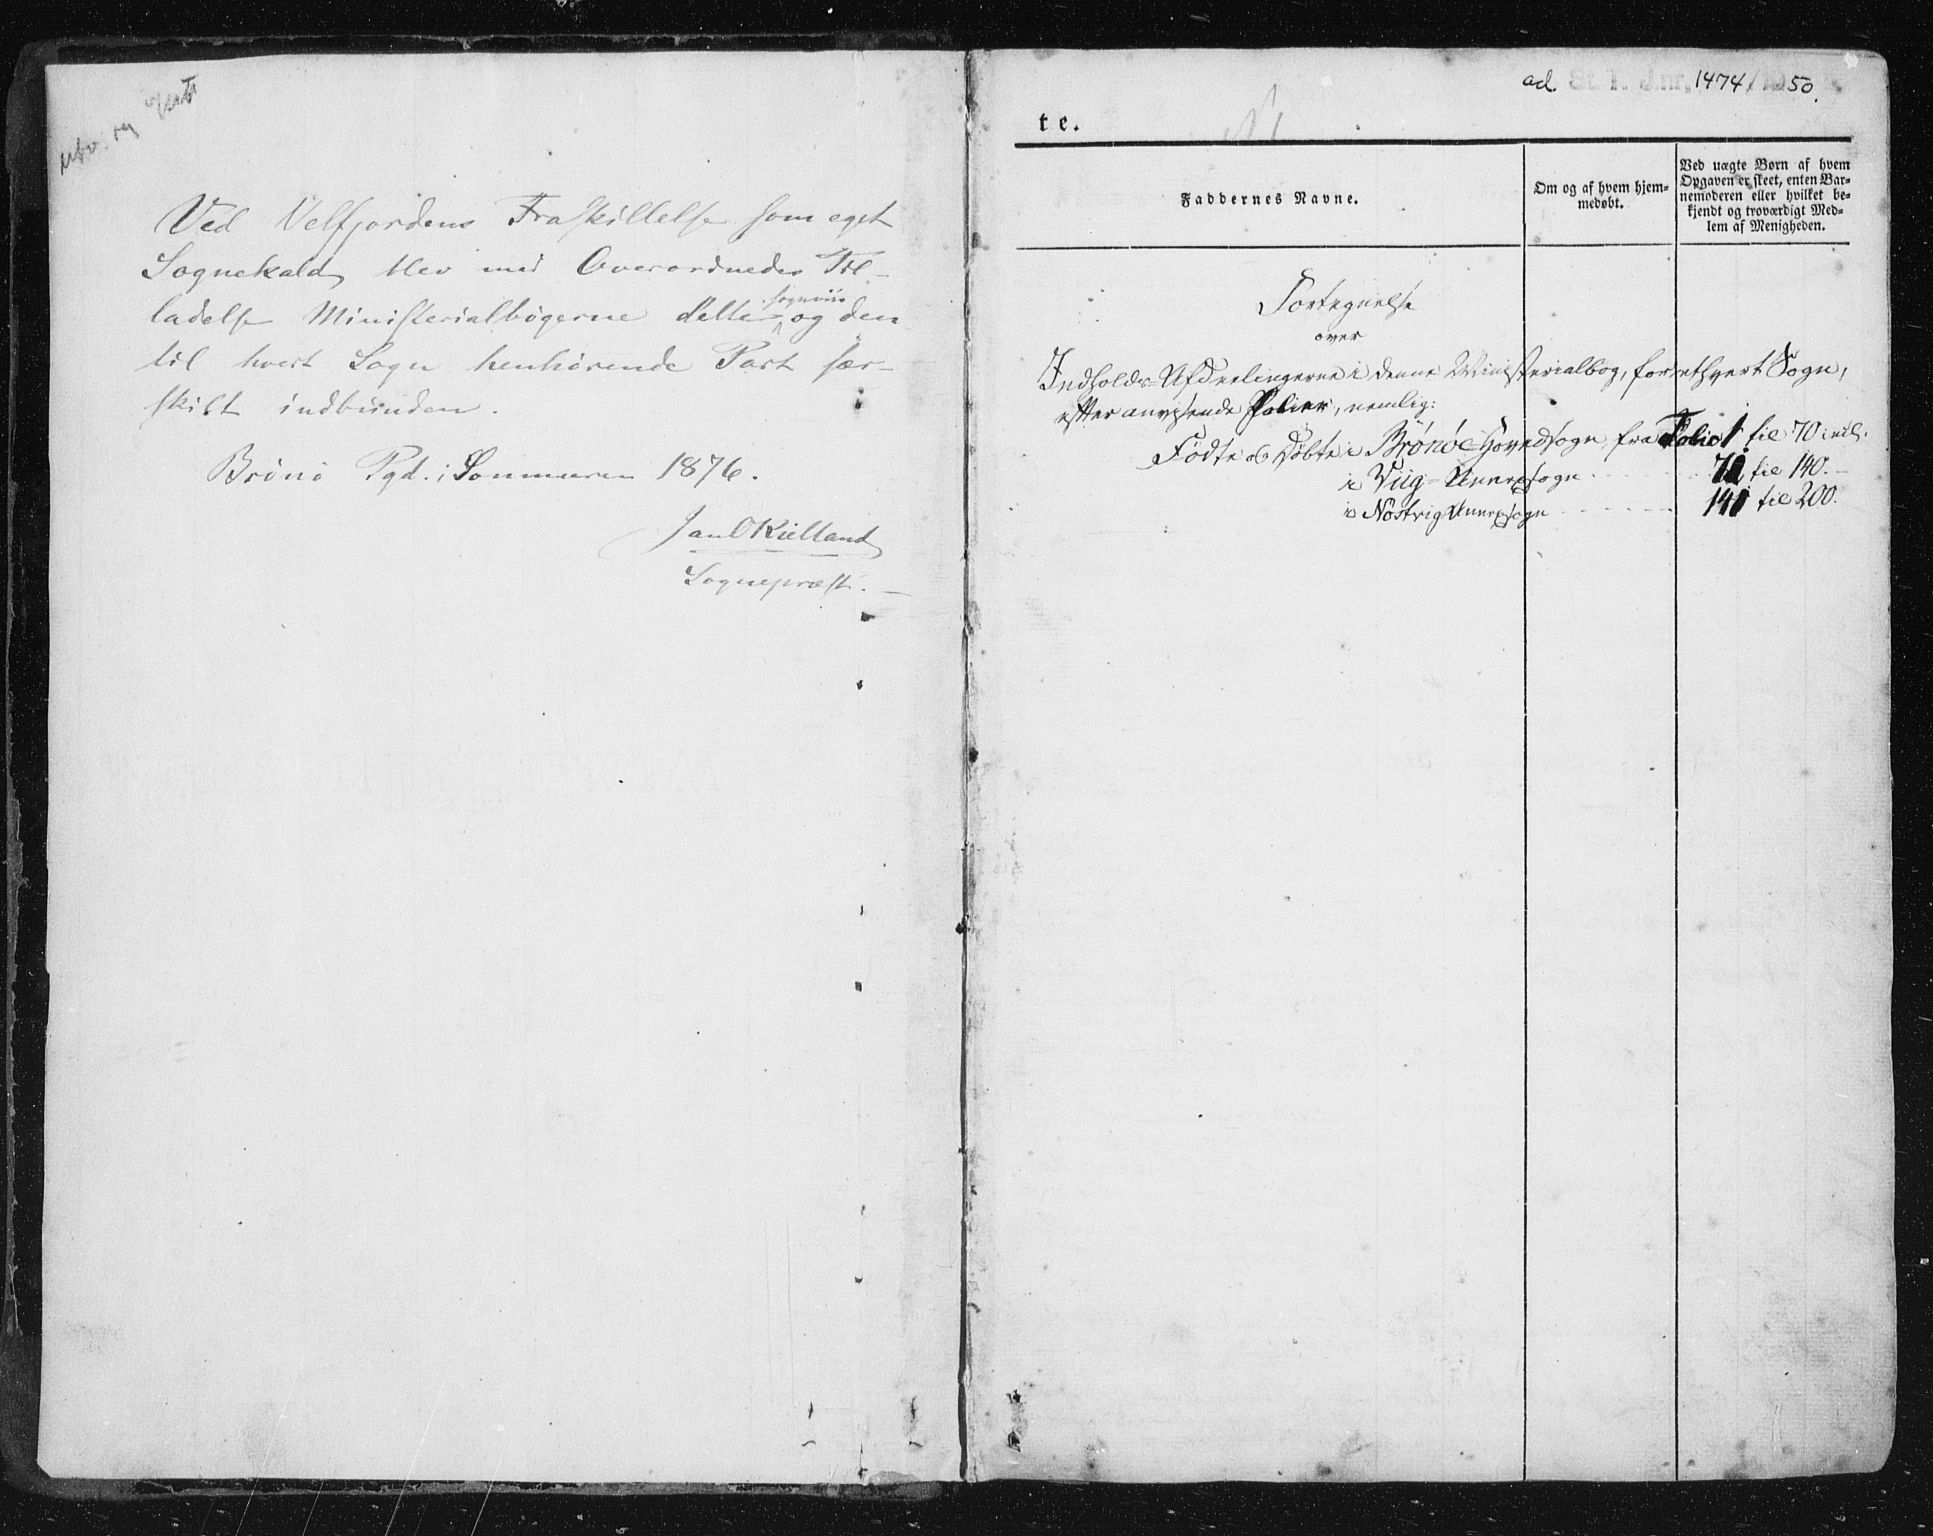 Ved Velfjordens Fraskillelse som eget
Sognekald blev med Overordnedes Til-
ladelse Ministerialbøgerne delte sogneviis og den
til hvert Sogn henhørende Part sær-
skilt indbunden.
Brönö Pgd. i Sommeren 1876.
Kielland
Sognepræst.
ad. St. A. J.nr. 1474/1950.
te.
Faddernes Navne.
Om og af hvem hjem-
medøbt.
Ved uægte Børn af hvem
Opgaven er skeet, enten Bar-
nemoderen eller hvilket be-
kjendt og troværdigt Med-
lem af Menigheden.
Fortegnelse
over
Indholds-Afdeelingerne i denne Ministerialbog, for ethvert Sogn,
efter anviisende Folier, nemlig:
Födte og Döbte i Brönöe Hovedsogn fra Folio 1 til 70 incl.
i Viig-Annexsogn 71 til 140.
i Nöstvig Annexsogn 141 til 200.